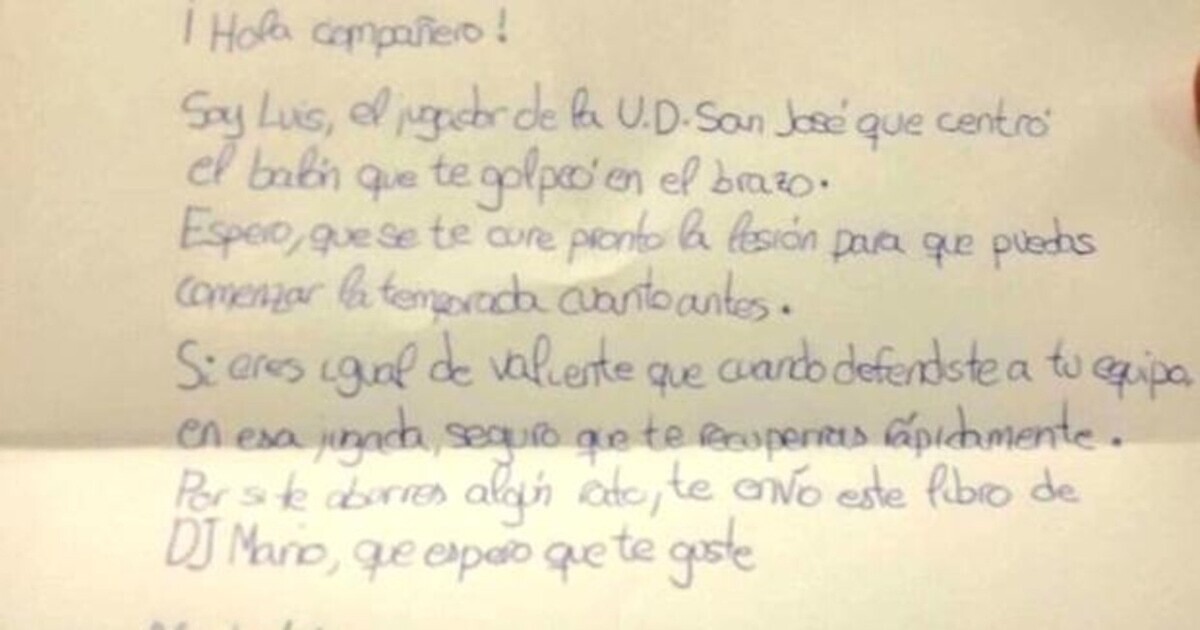 ¡Hola compañero!
Soy Luis, el jugador de la U.D. San José que centró
el balón que te golpeó en el brazo.
Espero, que se te cure pronto la lesión para que puedas
comenzar la temporada cuanto antes.
Si eres igual de valiente que cuando defendiste a tu equipo,
en esa jugada, seguro que te recuperas rápidamente.
Por si te aburres algún rato, te envío este libro de
DJ Mario, que espero que te guste